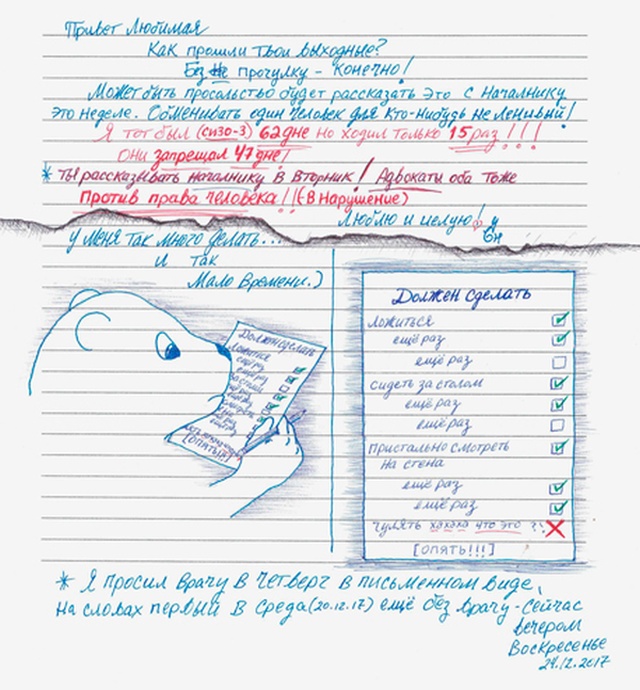 Привет Любимая
Как прошли твои выходные?
Без прогулку - конечно!
Может быть просольство будет рассказать это с началнику
это неделе. Обменивать один человек для кто-нибудь не ленивый!
Я тот был (сизо-3) 62 дне но ходил только 15 раз!!!
Они запрещал 47 дне!
* ты рассказывать началнику в Вторник! Адвокаты оба тоже
Против права человека!! (-В Нарушение)
Люблю и целую!
у меня так много делать...
и так
Мало Времени.)
Должен сделать
ложиться
ещё раз
ещё раз
(опять!!)
Должен сделать
ложиться
ещё раз
ещё раз
сидеть за столом
ещё раз
ещё раз
пристально смотреть
на стена
ещё раз
ещё раз
гулять хахаха что это ?!
[опять!!!]
* Я просил врачу в четверг в письменном виде,
на словах первый в среда (20.12.17) ещё без врачу - сейчас
вечером
Воскресенье
24.12.2017